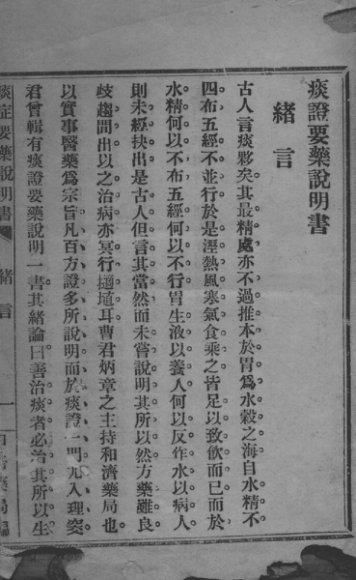 痰證要藥說明書
緒言
古人言痰夥矣其最精處亦不過推本於胃爲水穀之海自水精不
四布五經不並行於是溼熱風寒氣食乘之皆足以致飲而已而於
水精何以不布五經何以不行胃生液以養人何以反作水以病人
則未經抉出是古人但言其當然而未嘗說明其所以然方藥雖良
歧趨間出以之治病亦冥行擿埴耳曹君炳章之主持和濟藥局也
以實事醫藥爲宗旨凡百方證多所說明而於痰證一門尤入理窔
君曾輯有痰證要藥說明一書其緒論曰善治痰者必治其所以生
痰症要藥說明書
緒言
一